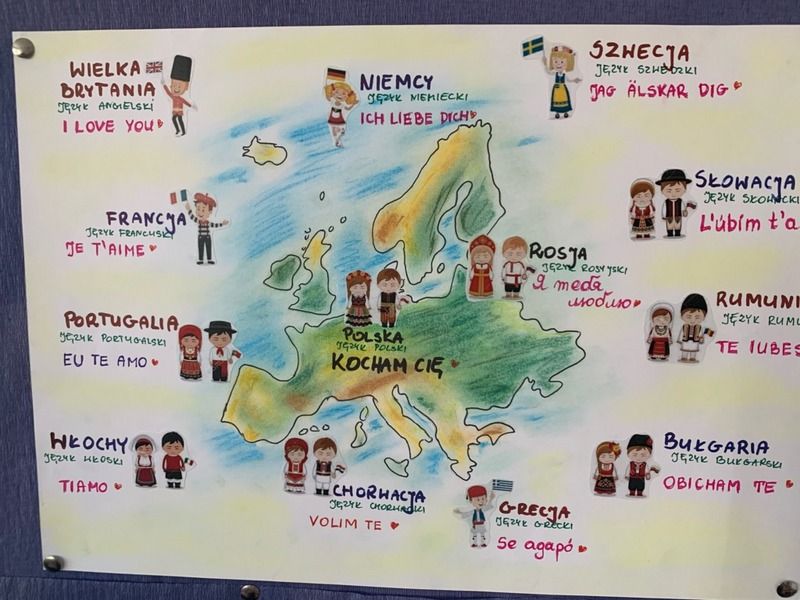 WIELKA
BRYTANIA
JĘZYK ANGIELSKI
I LOVE YOU
NIEMCY
JĘZYK NIEMIECKI
ICH LIEBE DICH
SZWECJA
JĘZYK SZWEDZKI
JAG ÄLSKAR DIG
FRANCJA
JĘZYK FRANCUSKI
JE T'AIME
SŁOWACJA
JĘZYK SŁOWACKI
L'úbim t'a
ROSJA
JĘZYK ROSYJSKI
Я тебя
люблю
PORTUGALIA
JĘZYK PORTUGALSKI
EU TE AMO
POLSKA
JĘZYK POLSKI
KOCHAM CIĘ
RUMUNI
JĘZYK RUMU
TE IUBES
WŁOCHY
JĘZYK WŁOSKI
TIAMO
CHORWACJA
JĘZYK CHORWACKI
VOLIM TE
GRECJA
JĘZYK GRECKI
Se agapó
BUŁGARIA
JĘZYK BUŁGARSKI
OBICHAM TE